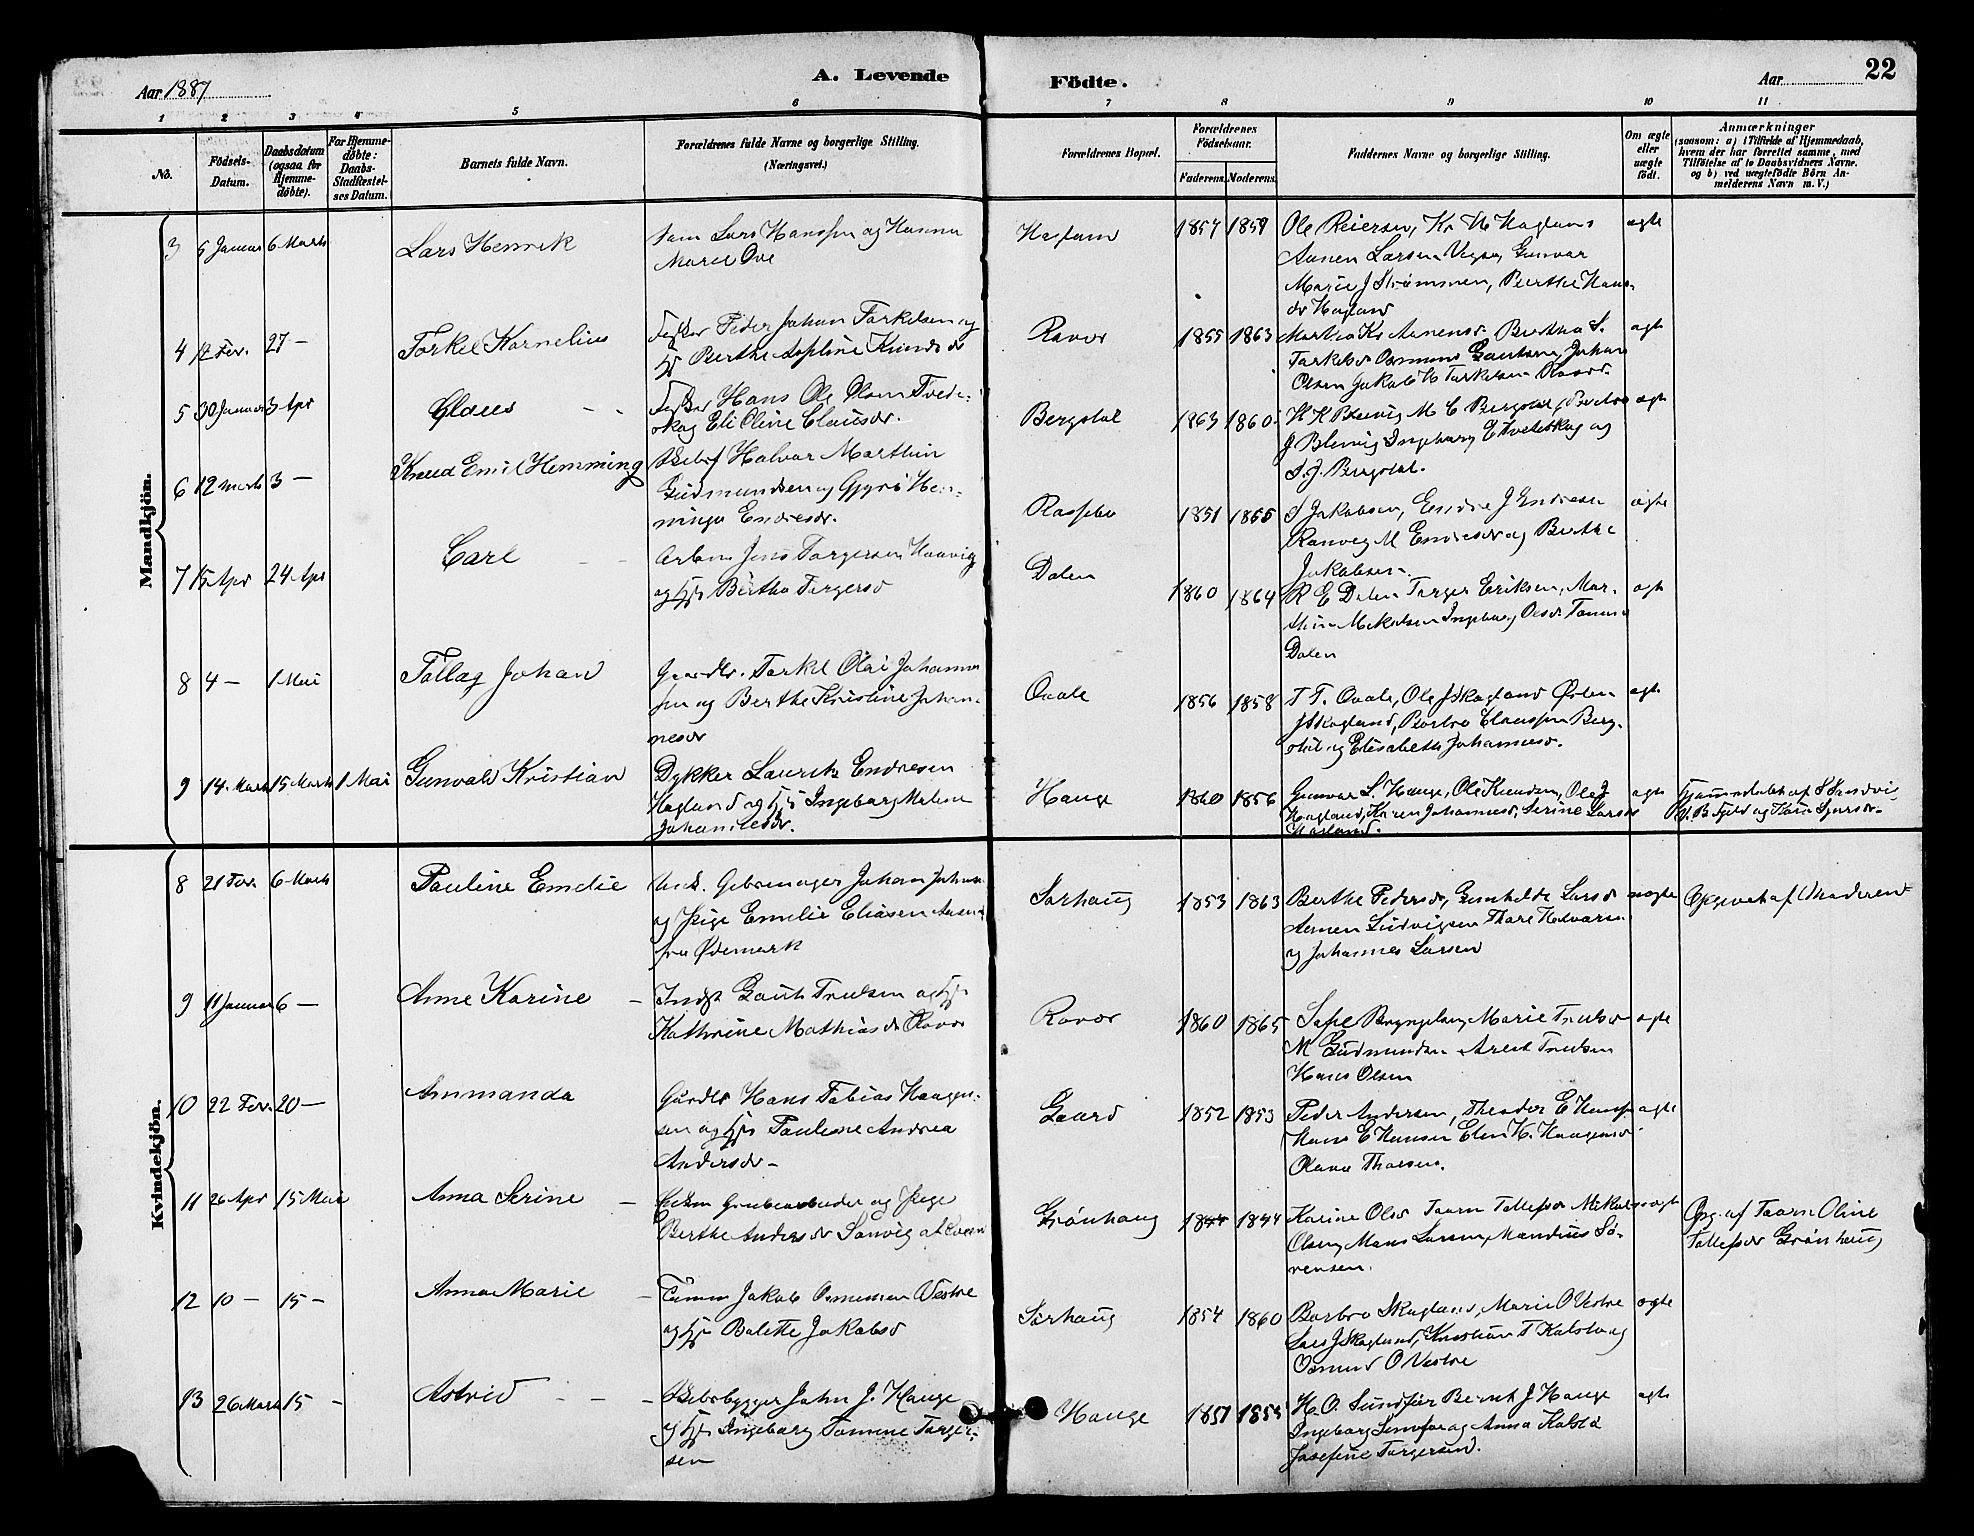 Aar 1887
A. Levende
Födte.
Aar
22
1 2 3 4 5 6 7 8 9 10 11
No.
Födsels-
Datum.
Daabsdatum
(ogsaa for
Hjemme-
döbte).
For Hjemme-
döbte:
Daabs-
Stadfæstel-
ses Datum.
Barnets fulde Navn.
Forældrenes fulde Navne og borgerlige Stilling.
(Næringsvei.)
Forældrenes Bopæl.
Forældrenes
Födselsaar.
Faderens.
Moderens.
Faddernes Navne og borgerlige Stilling.
Om ægte
eller
uægte
födt.
Anmærkninger
(saasom: a) i Tilfælde af Hjemmedaab,
hvem der har forrettet samme, med
Tilföielse af to Daabsvidners Navne.
og b) ved uægtefödte Börn An-
melderens Navn m. V.)
Mandkjön.
3 5 Januar 6 Marts Lars Henrik
Lars Hanssen og Hanna
Marie Ove
Hagland 1857 1859
Ole Reiersen, Kr H Hagland
Aanen Larsen Gunvar
Marie J Strømmen, Berthe Hans-
dr Hagland
ægte
4 12 Fev. 27 — Torkel Kornelius
Fisker Peder Johan Torkelsen og
Hj Berthe Knudsdr
Røvær 1855 1863
Martha Kr Aanensd. Bertha S.
Torkelsdr Osmund Gautsen, Johan
Olsen Jakob H Torkelsen Røvær.
ægte
5 30 Januar 3 Apr Claus
Fisker Hans Ole Olsen
og Eli Oline Clausdr.
Bergstøl 1863 1860
H K Blervig M C Bergstøl,
J Blervig Ingeborg E og
S. J. Bergstøl.
ægte
6 12 Marts 3 — Knud Emil Hemming
Halvor Marthin
Gudmundsen og Gyri Hen-
ninge Endresdr.
Rossebø 1851 1855
S Jakobsen, Endre J Endresen
Ranveig M Endresdr og Berthe
Jakobsen.
ægte
7 15 Apr 24 Apr Carl
Arbm Jens Torgersen Haavig
og Hj Bertha Torgersd
Dalen 1860 1864
R E Dalen Torger Eriksen, Mar-
thin Mikelsen Ingeborg Olsdr
Dalen
ægte
8 4 — 1 Mai Tollag Johan
Gaardbr. Torkel Olai Johannes-
sen og Berthe Kristine Johan-
nesdr
Qvale 1856 1858
T T. Qvale, Ole J Skogland Østen
J Skogland, Barbro Claussen Berg-
støl og Elisabeth Johannesd.
ægte
9 14 Marts 15 Marts 1 Mai Gunvald Kristian
Dykker Lauritz Endresen
Hagland og Hj Ingeborg Malene
Johannesdr.
Hauge 1860 1856
Gunvar L. Hauge, Ole Knudsen, Ole J
Hagland, Karen Johannesd, Serine Larsdr
Hagland.
ægte
Hjemmedøbt af S Sandvi
Kvindekjön.
8 21 Fev. 6 Marts Pauline Emelie
Johan Johan
og Pige Emelie Eliasen
fra Ødemark
Sørhaug 1853 1863
Berthe Pedersd, Gunhilde Larsd
Aanen Ludvigsen Thore Halvorsen
og Johannes Larsen
uægte
Opgivet af Moderen
9 11 Januar 6 — Anne Karine —
Indst Gaut Trulsen og Hj
Kathrine Mathiasdr Røvær
Røvær 1860 1865
Marie Trulsd
M Gudmundsen Trulsen
Hans Olsen
ægte
10 22 Fev. 20 — Ammanda
Gaardbr Hans Tobias Haagen-
sen og Hj Pauline Andrea
Andersdr —
Gaard 1852 1853
Peder Andersen, Theodor E Hansen
Hans E Hansen Elen H. Haagensdr
Olava Thorsen.
ægte
11 26 Apr 15 Mai Anna Serine —
Grubearbeider og Pige
Berthe Andersdr Sanvig
Grønhaug 1844 1844
Karine Olsd Taarn Tollefsdr Mikal
Olsen, Mons Larsen, Mandius Sø-
rensen.
uægte
Opg. af Taarn Oline
Tollefsdr Grønhaug
12 10 — 15 — Anna Marie —
Tømm Jakob Osmundsen Vestre
og Hj Bolette Jakobsd
Sørhaug 1854 1860
Barbro Skogland, Marie O Vestre
Lars J Skogland, Kristian T Kalstø og
Osmund O Vestre
ægte
13 26 Marts 15 — Astrid — — —
Skibsbygger John J. Hauge
og Hj Ingeborg Tomine Torger-
sen
Hauge 1851 1855
H. O. Sundfør Bernt J Hauge
Ingeborg Sundfør og Anna Kalstø
Josefine Torgersen.
ægte